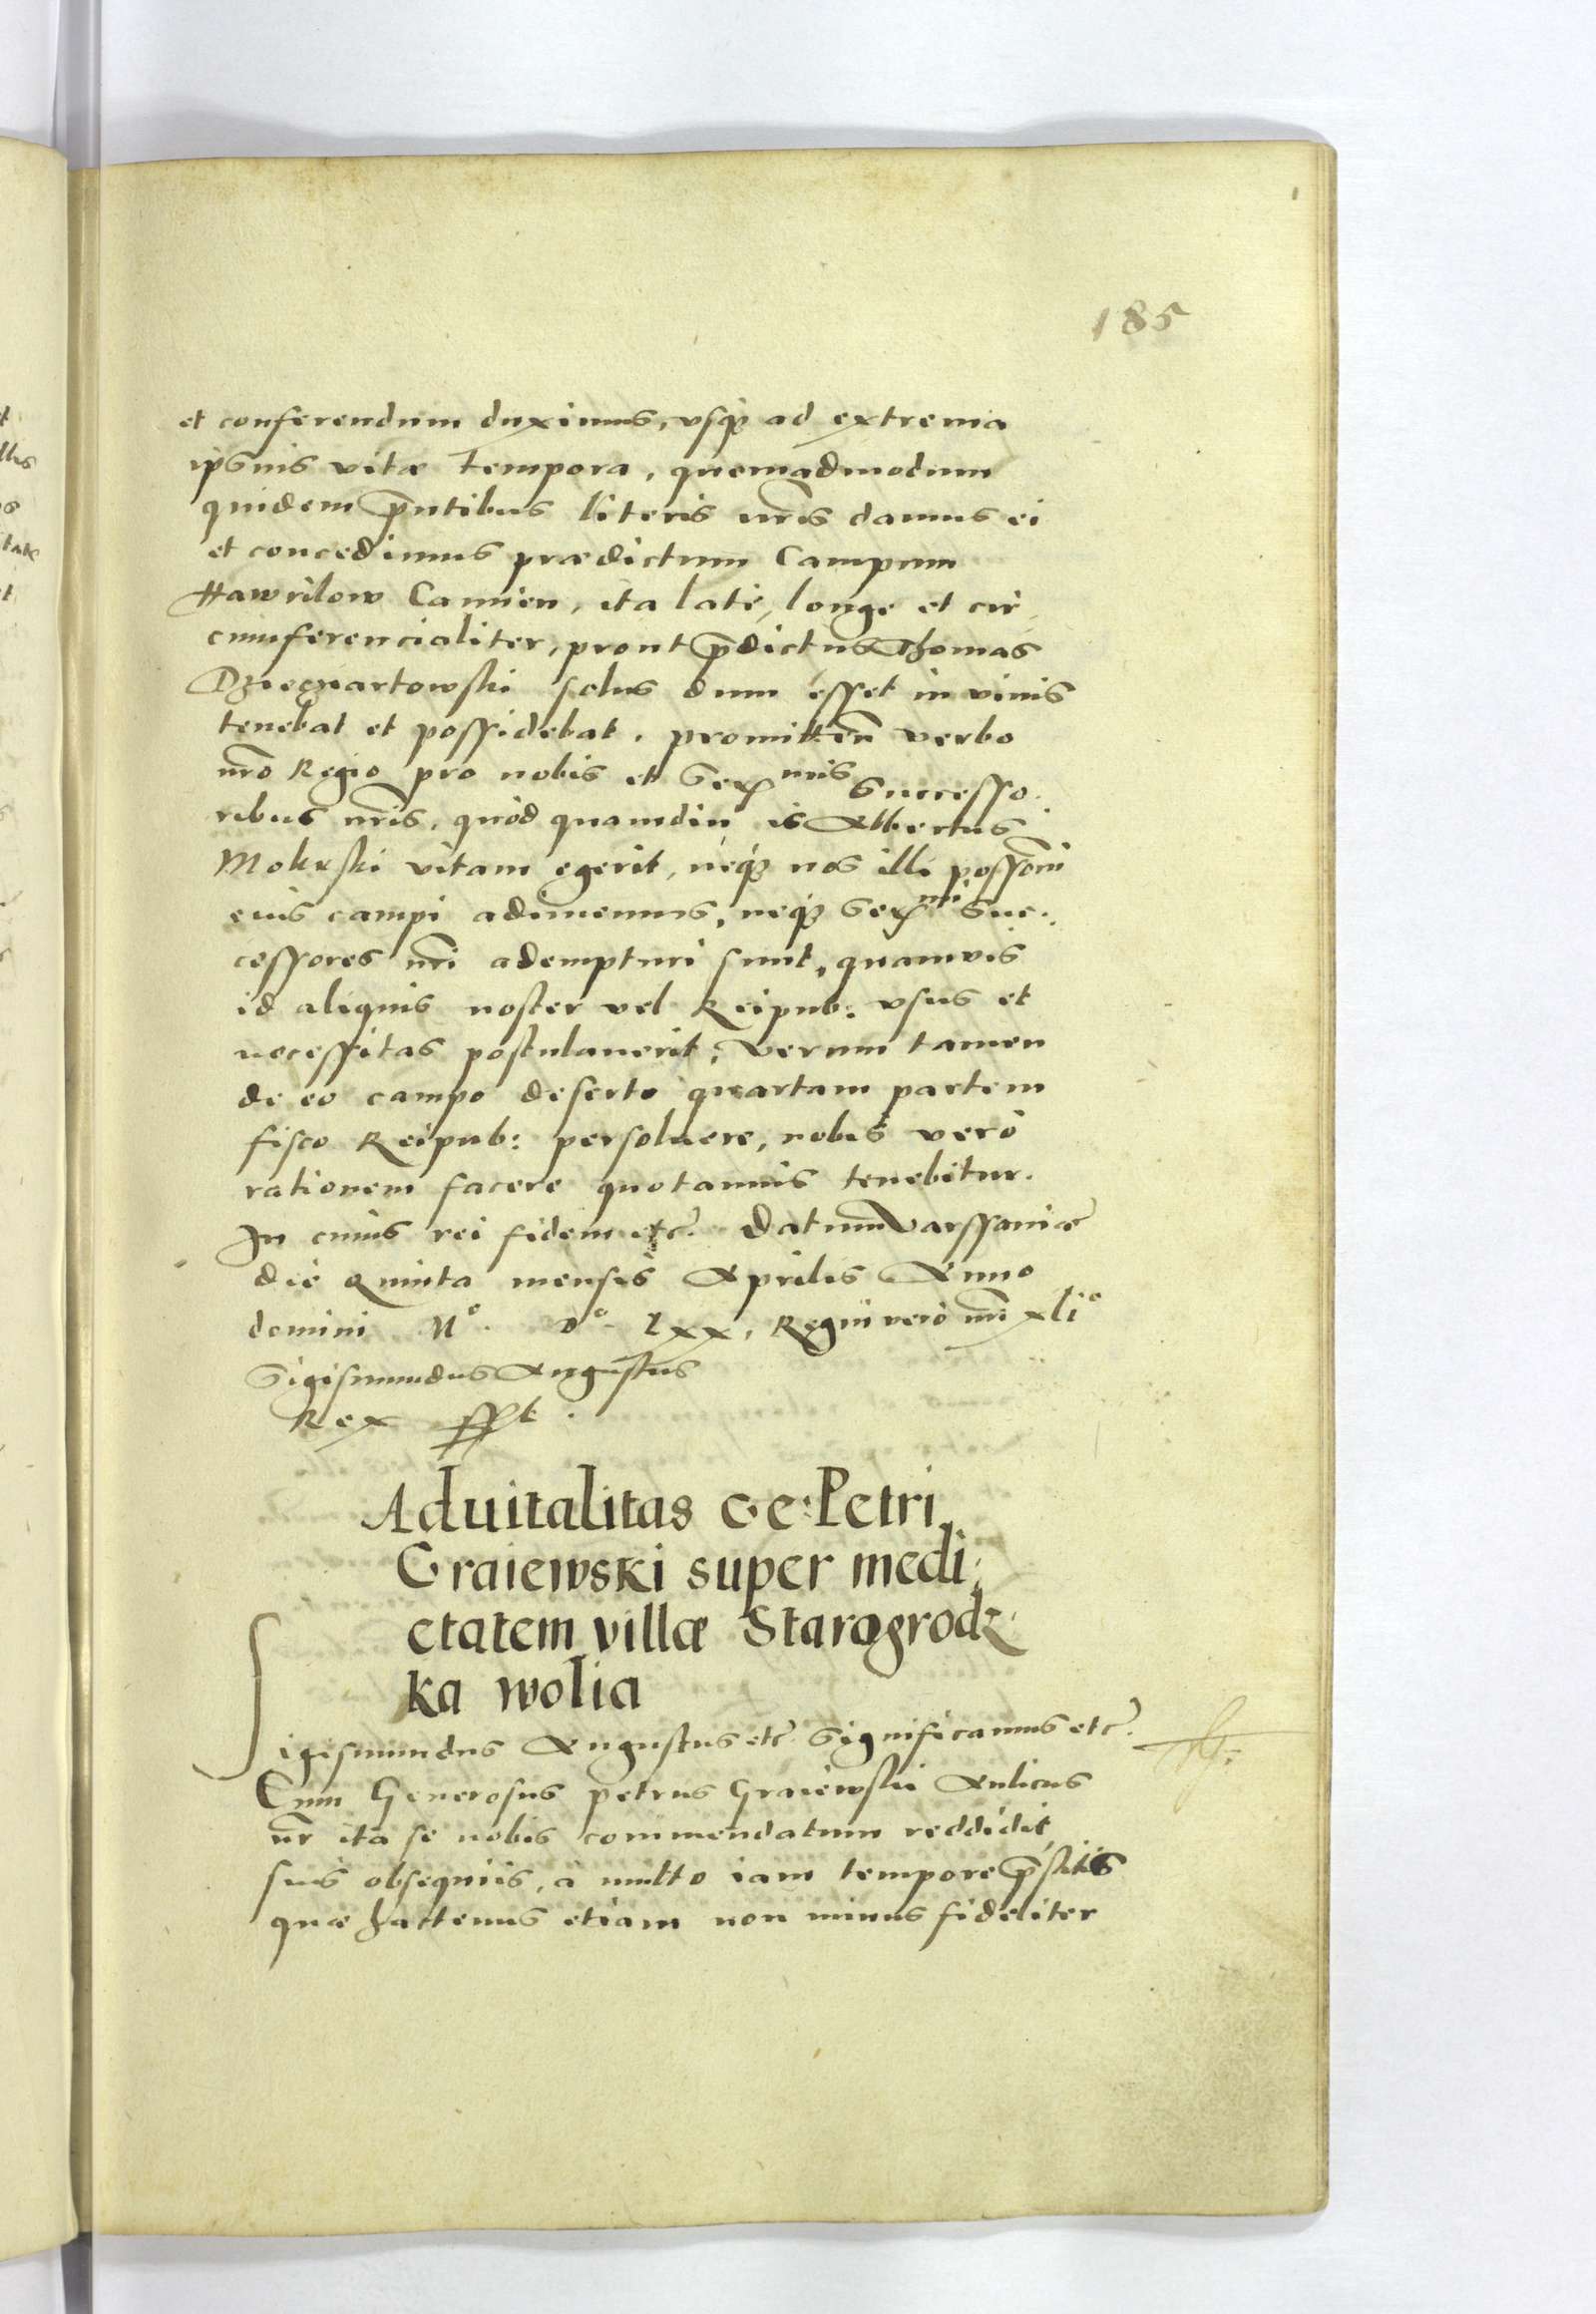 185
et conferendum duximus, vsq3 ad extrema
ipsius vitæ tempora, quemadmodum
quidem p̄ntibus literis nr̄is damus ei
et concedimus prædictum Campum
Hawrilow Camien, ita latè, longe et cir
cumferencialiter, prout p̄dictus Thomas
solus dum esset in viuis
tenebat et possidebat. promitten̄ verbo
nr̄o Regio pro nobis et Serᵐⁱˢ Successo.
ribus nr̄is, quòd quamdiu is Albertus
vitam egerit, neq3 nos illi possom̄
eius campi adimemus, neq3 Serᵐⁱ Suc.
cessores nr̄i adempturi sunt, quamvis
id aliquis noster vel Reipub: vsus et
necessitas postulauerit, verum tamen
de eo campo deserto quartam partem
fisco Reipub: persoluere, nobis verò
rationem facere quotannis tenebitur.
In cuius rei fidem etc̄. Datum Varssauiæ
die Quinta mensis Aprilis Anno
domini M° D° Lxx, Regni verò nr̄i xli°
Sigismundus Augustus
Rex sspt.
Aduitalitas G.e: Petri
Graiewski super medi,
etatem villæ Starogrodz
ka wolia
Sigismundus Augustus etc̄ Significamus etc̄.
Cum Generosus Petrus Graiewski Aulicus
nr̄ ita se nobis commendatum reddidit
suis obsequiis, à multo iam tempore p̄stitis
quæ hactenus etiam non minus fideliter